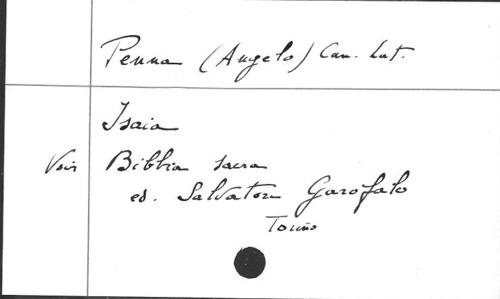 Penna (Angelo) Can. Lat.
Isaia
Voir Bibbia sacra
ed. Salvatore Garofalo
Torino